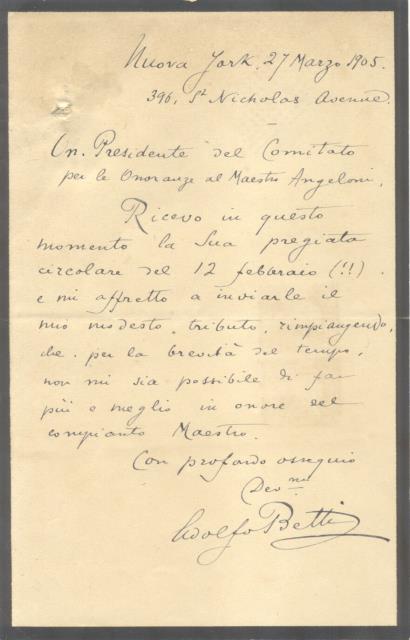 Nuova York, 27 Marzo 1905.
396, St Nicholas Avenue.
On. Presidente del Comitato
per le Onoranze al Maestro Angeloni,
Ricevo in questo
momento la Sua pregiata
circolare del 12 febbraio (!!)
e mi affretto a inviarle il
mio modesto tributo, rimpiangendo,
che, per la brevità del tempo,
non mi sia possibile di far
più e meglio in onore del
compianto Maestro.
Con profondo ossequio
Devmo
Adolfo Betti